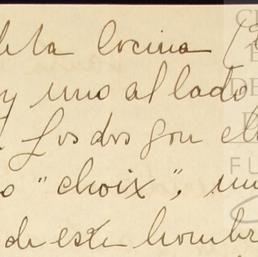 de la Cocina (
y uno al lado
. Los dos son el
o "choix", un
de este hombr